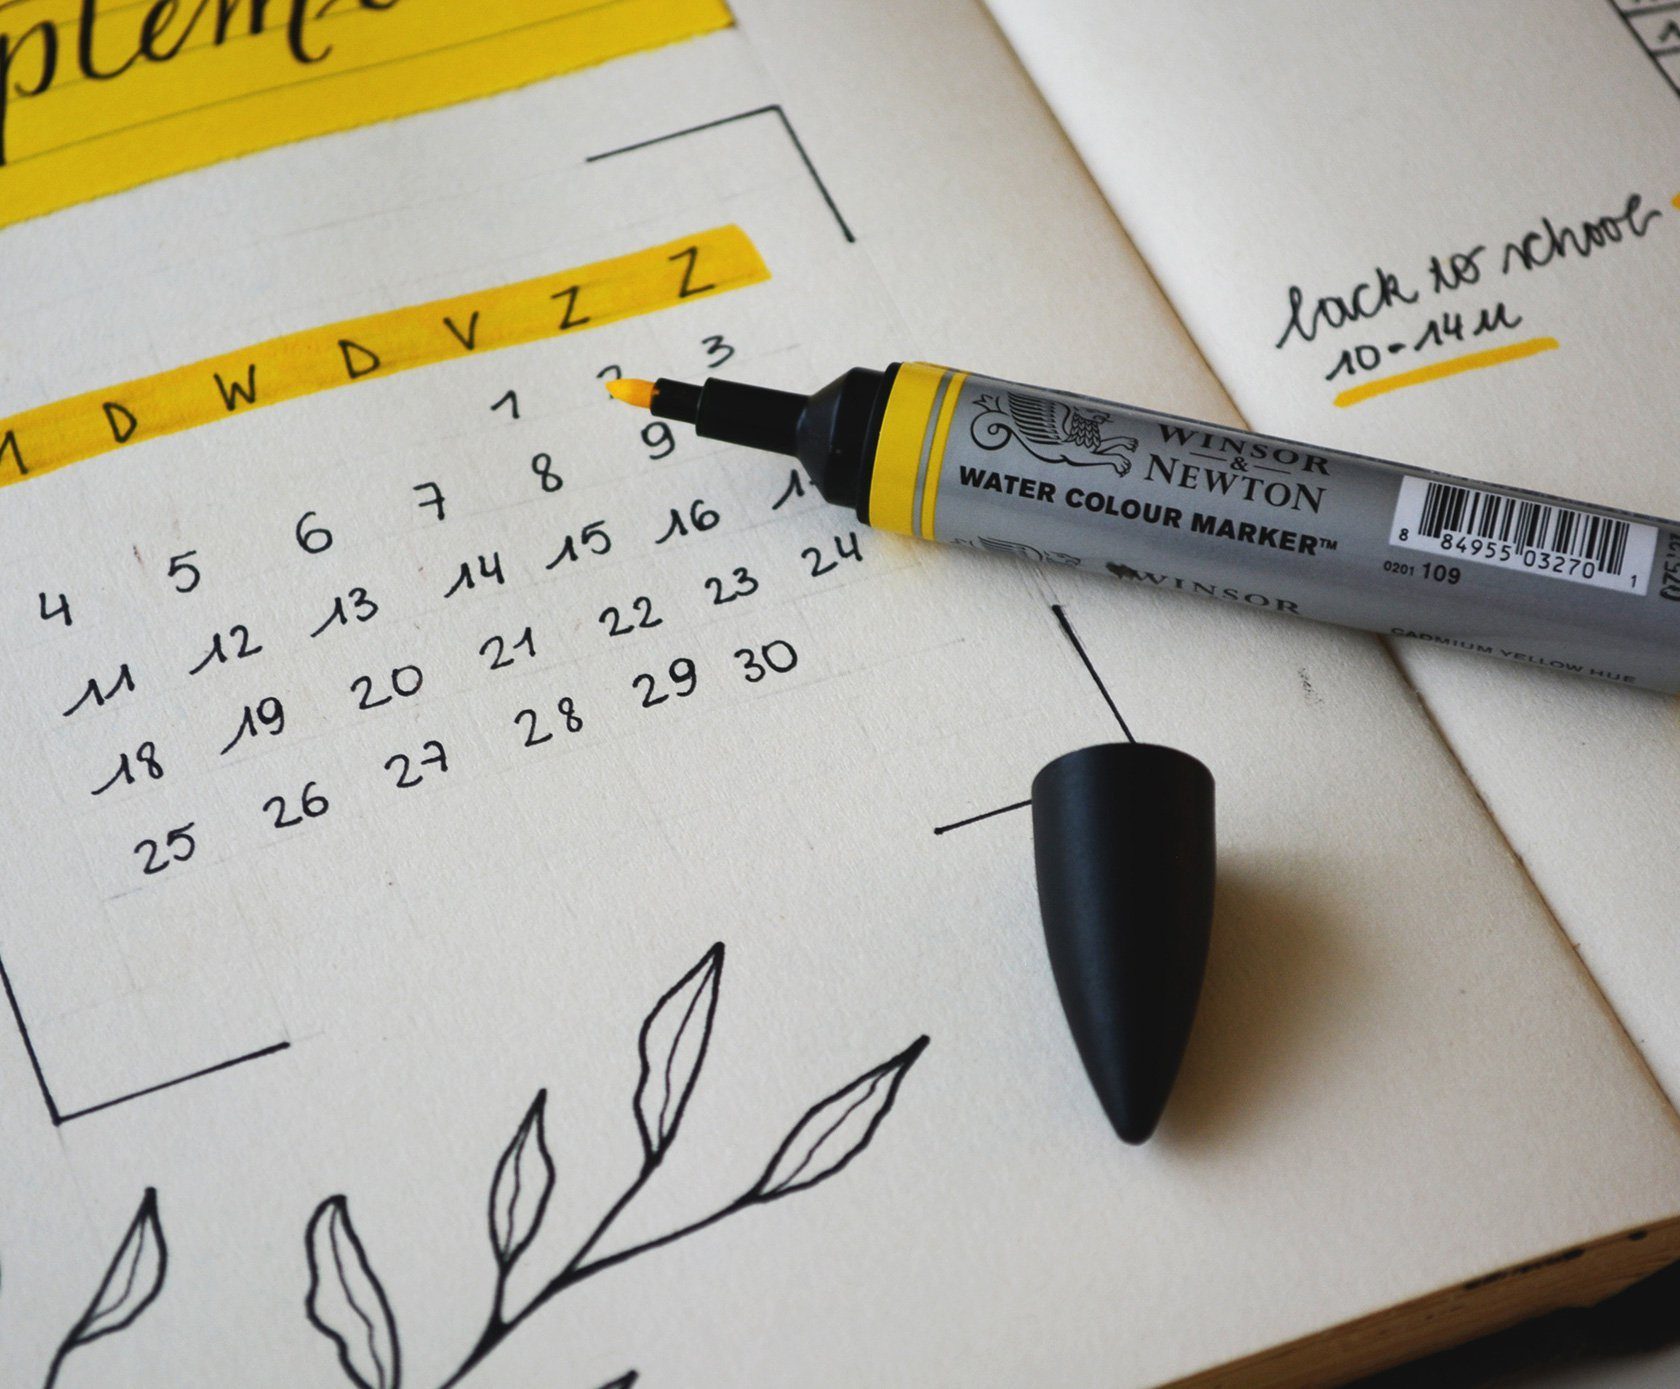 ptem
D W D V Z Z
1 2 3
4 5 6 7 8 9
11 12 13 14 15 16
18 19 20 21 22 23 24
25 26 27 28 29 30
back to school
10-14u
WINSOR
&
NEWTON
WATER COLOUR MARKER™
WINSOR
8 84955 03270 1
0201 109
CADMIUM YELLOW HUE